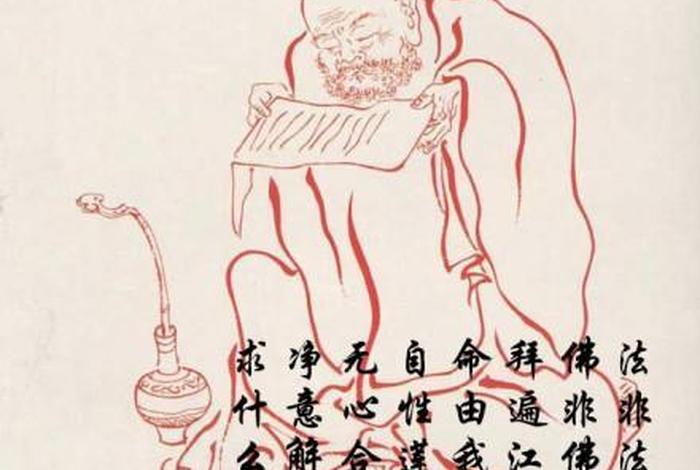 法非法
佛非佛
拜遍江
命由我
自性
无心合
净意解
求什么